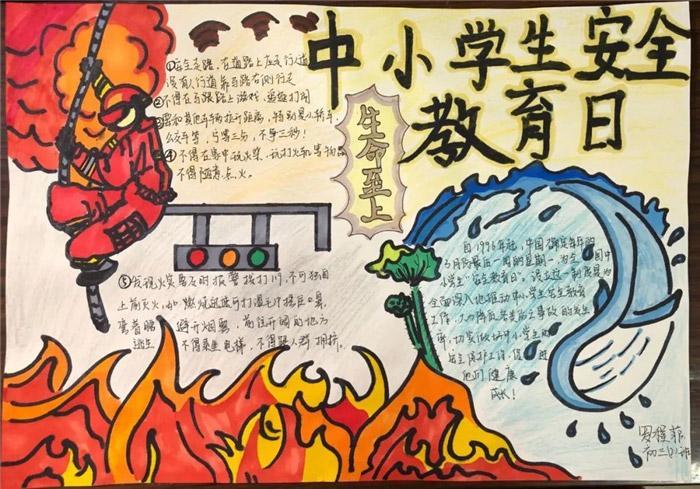 中小学生安全
教育日
生命至上
①安全走路,在道路上应走人行道
没有人行道靠马路右侧行走
②不得在马路上游戏、追逐打闹
③要和其他车辆拉开距离,特别是小轿车、
公交车等,宁等三分,不争三秒!
④不得在家中玩火柴、玩打火机等物品
不得随意点火。
⑤发现火灾要及时报警拨打119,不可独自
上前灭火,如
弯着腰 避开烟雾,前往开阔的地方
逃生 不得乘坐电梯,不得跟人群拥挤。
自1996年起,中国确定每年的
3月份最后一周的星期一,为全国中
小学生“安全教育日”。设立这一制度是为
全面深入地推动中小学生安全教育
工作,大力降低各类伤亡事故的发生
率,切实做好中小学生的
安全保护工作,促进
他们健康
成长!
初三